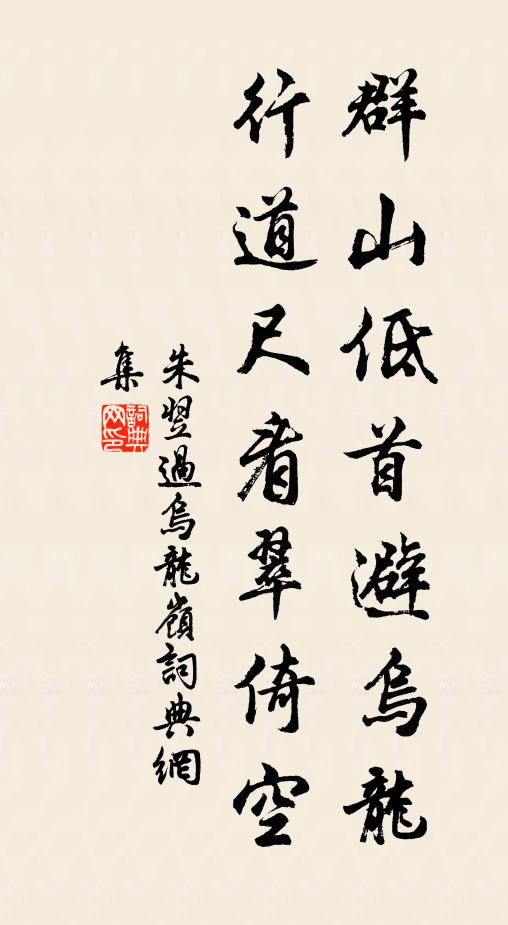 群山低首避烏龍
行道尺看翠倚空
朱翌過烏龍嶺詞典網
集
詞典网印